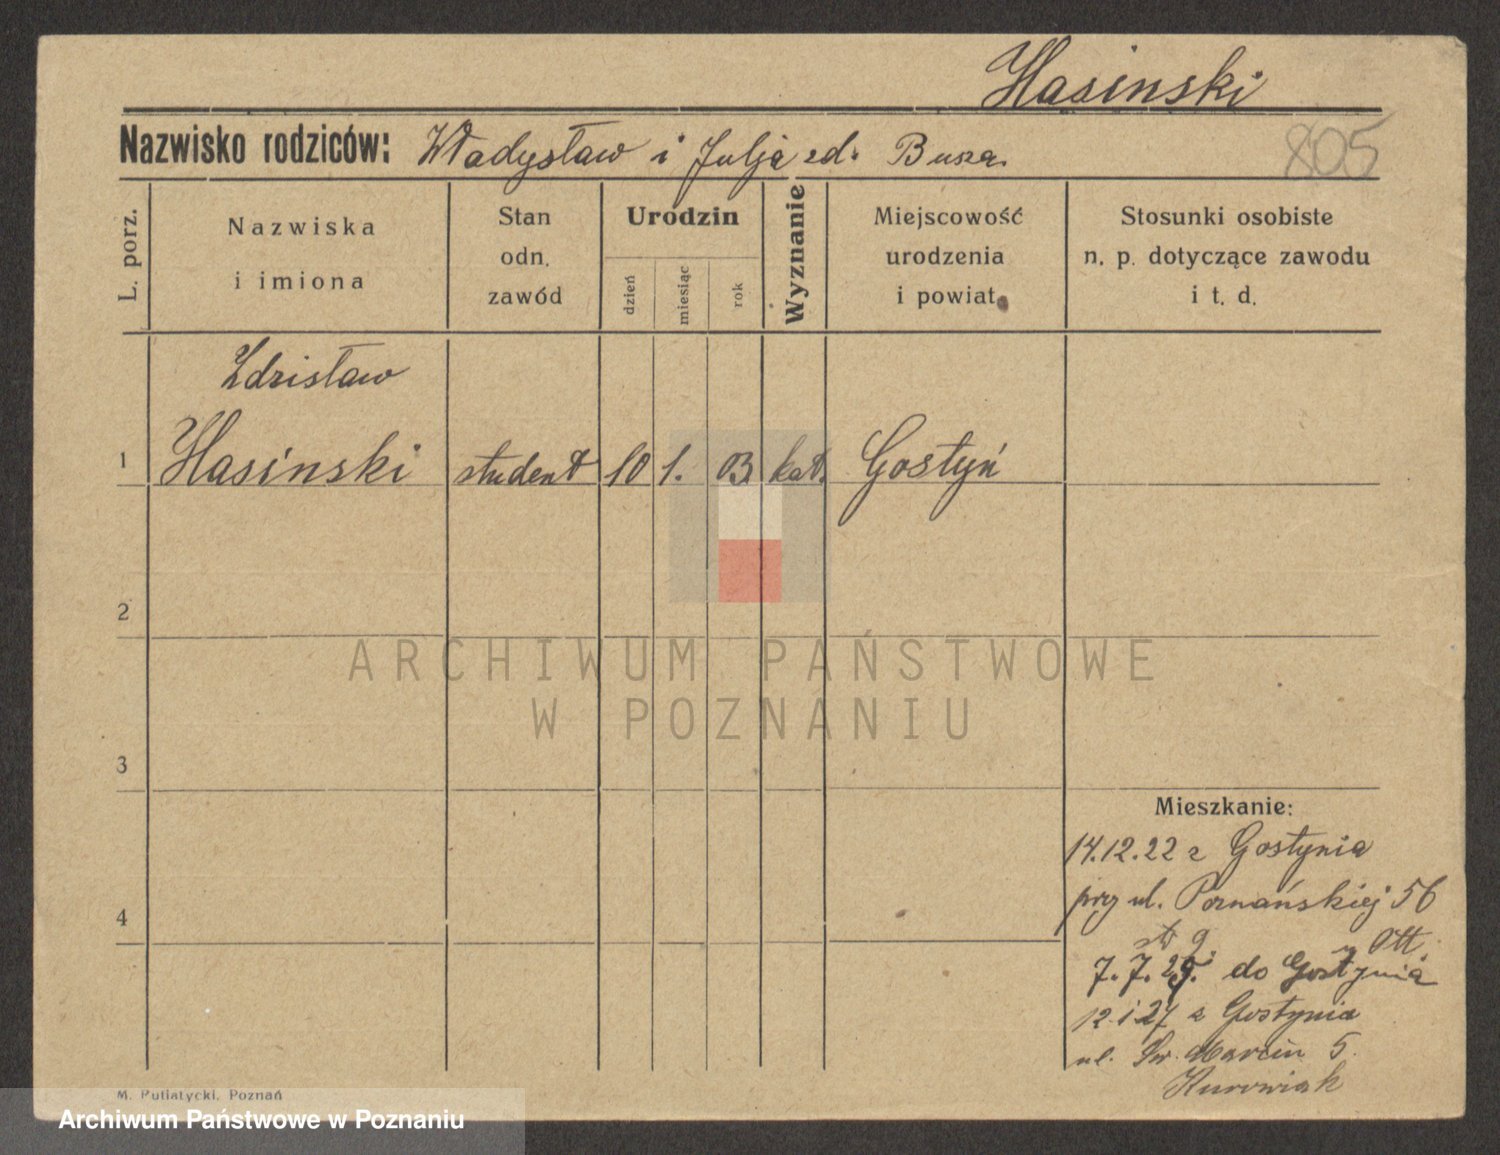 Hasinski
Nazwisko rodziców: Władysław i Julja zd. Busza.
805
L. porz.
Nazwiska
i imiona
Stan
odn.
zawód
Urodzin
dzień
miesiąc
rok
Wyznanie
Miejscowość
urodzenia
i powiat
Stosunki osobiste
n. p. dotyczące zawodu
i t. d.
Zdzisław
1 Hasinski student 10 1. 03 kat. Gostyń
2
ARCHIWUM PAŃSTWOWE
W POZNANIU
3
Mieszkanie:
14.12.22 z Gostynia
przy ul. Poznańskiej 56
4
9. Ott.
7.7.25. do Gostynia
12.1.27 z Gostynia
ul. Św. Marcin 5.
Kurowiak
M. Putiatycki, Poznań
Archiwum Państwowe w Poznaniu